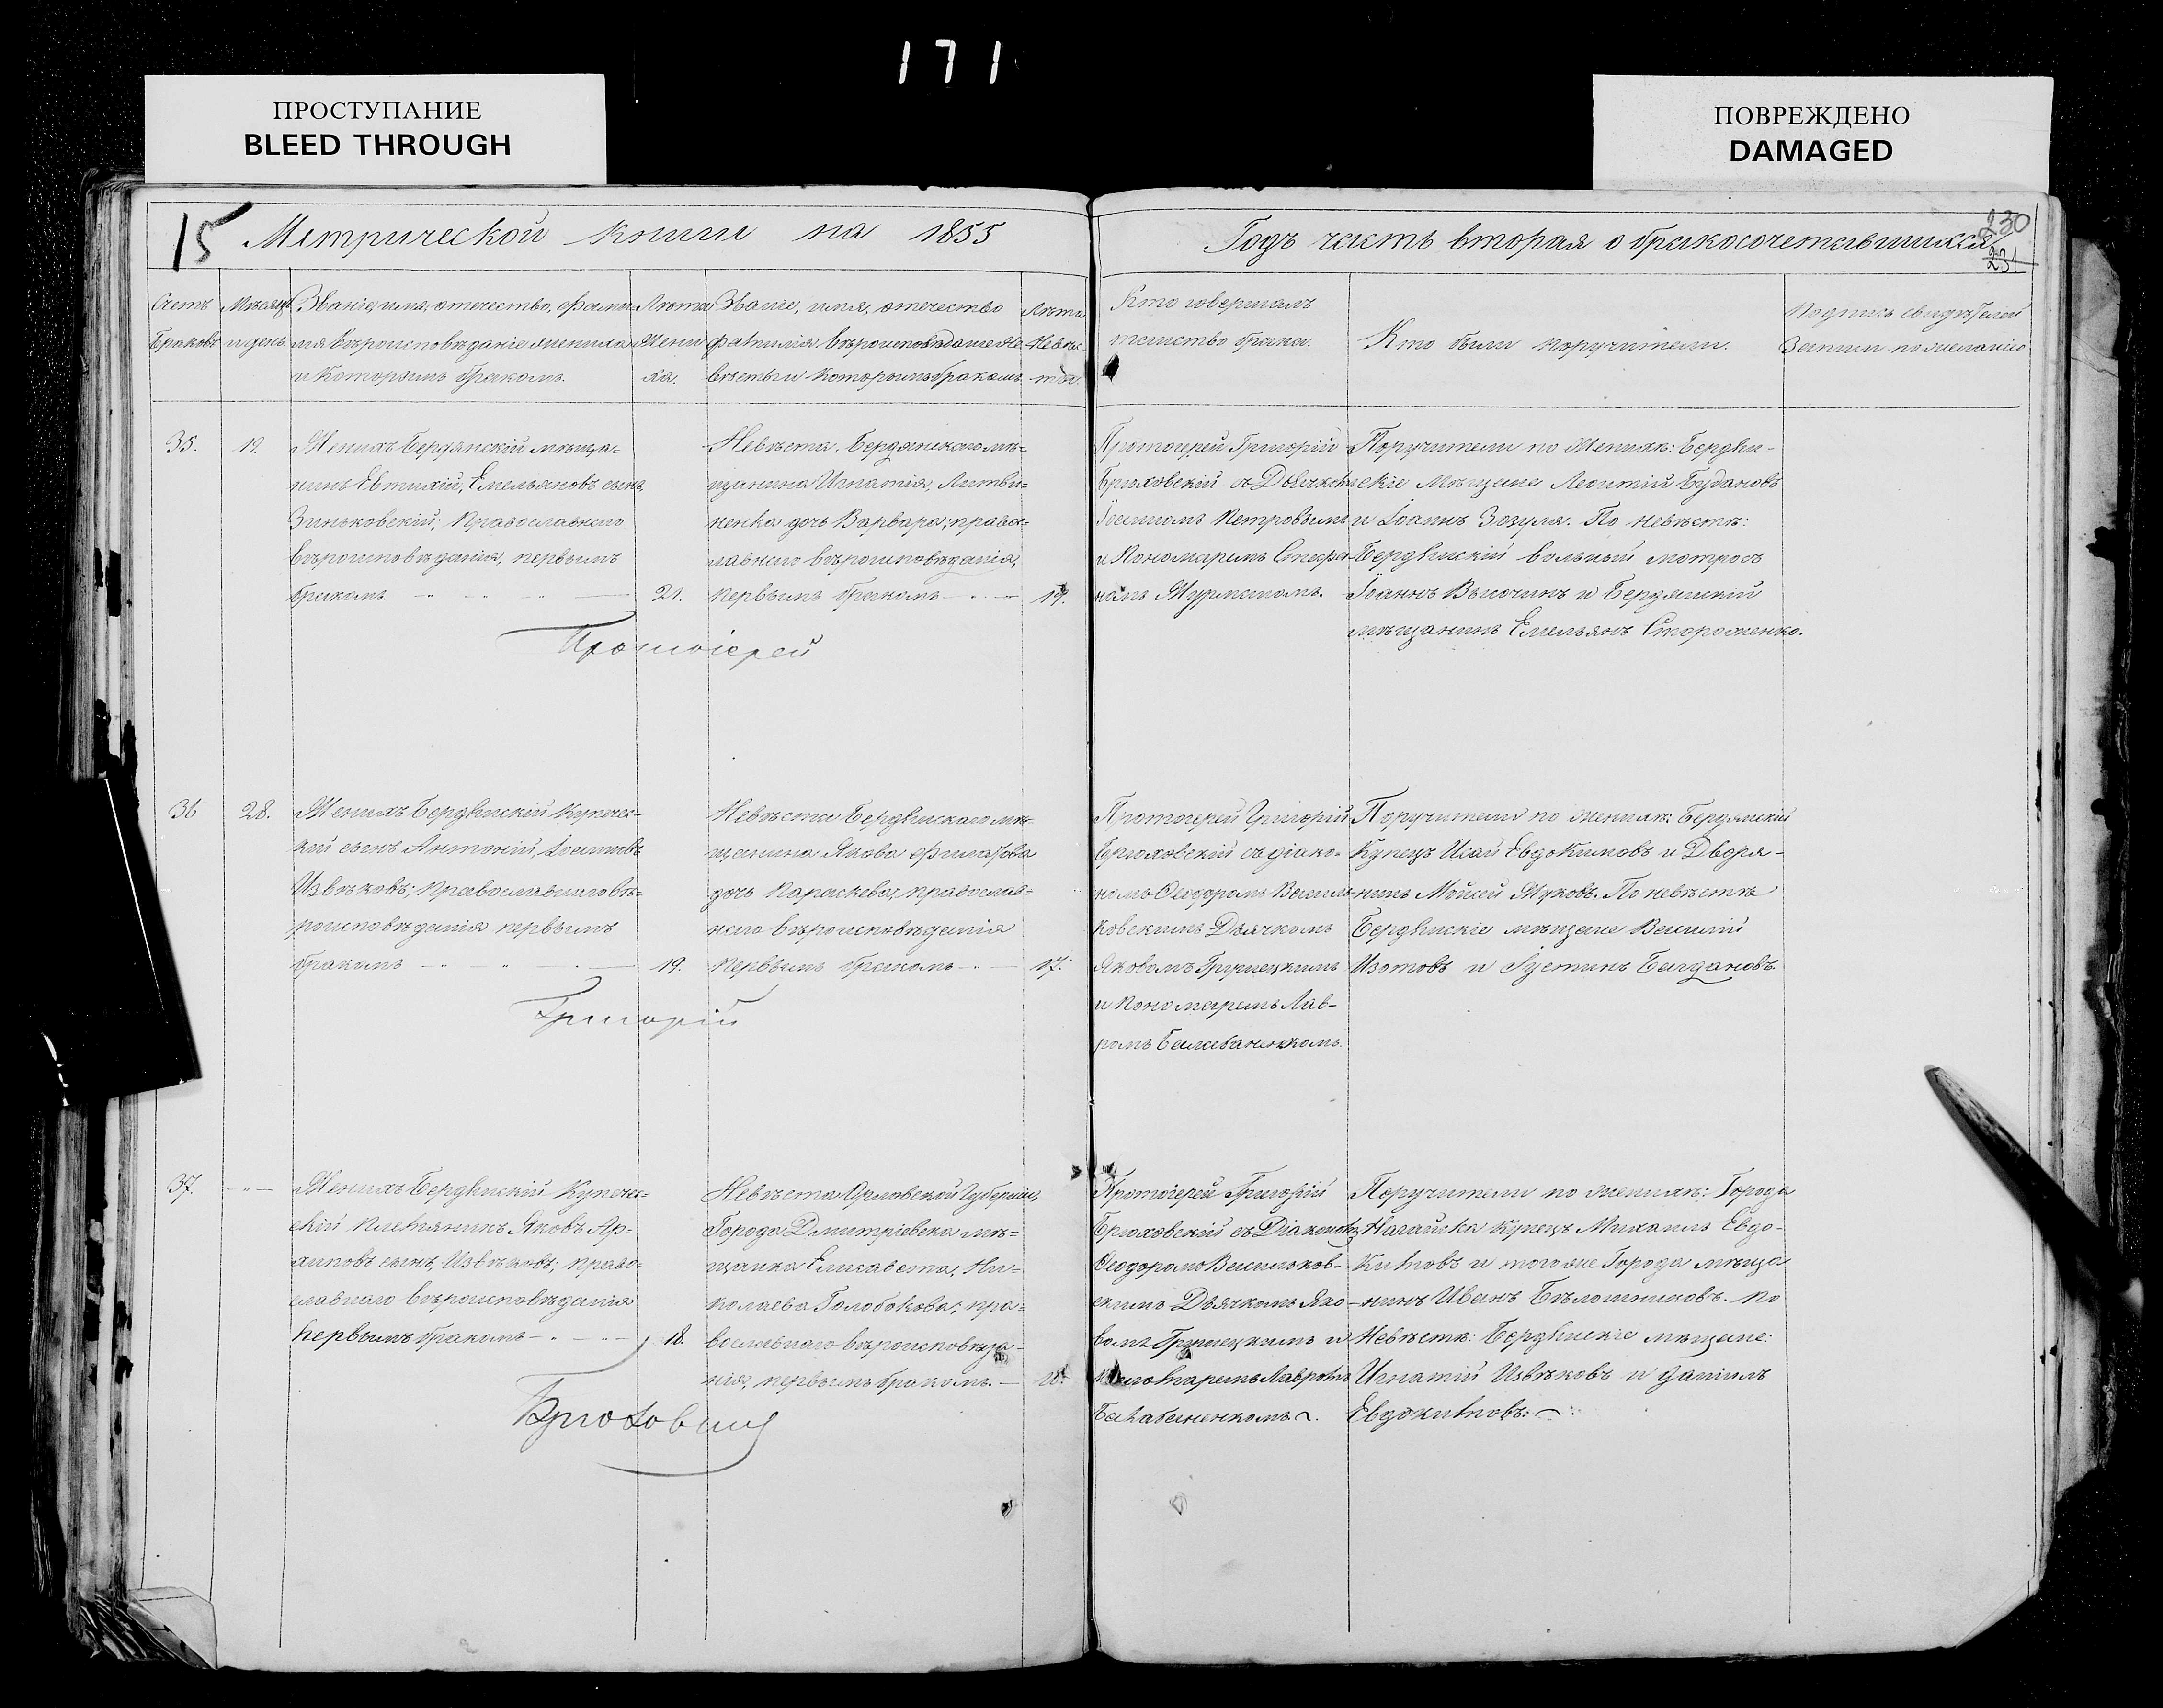 171
ПРОСТУПАНИЕ
BLEED THROUGH
ПОВРЕЖДЕНО
DAMAGED
15
Метрической книги на 1855
Годъ часть вторая о бракосочетавшихся
230
231
Счетъ
Браковъ
Мѣсяцъ
и день
Званіе, имя, отечество, фами-
лія вѣроисповѣданіе жениха
и которымъ бракомъ.
Лѣта
Жени
ха.
Званіе, имя, отечество
фамилія, вѣроисповѣданіе Не-
вѣсты и которымъ бракомъ
Лѣта
Невѣс-
ты.
Кто совершалъ
таинство брака.
Кто были поручители.
Подпись свидѣтелей
записи по желанію
35.
19.
Женихъ Бердянскій мѣща=
нинъ Евтихій, Емельяновъ сынъ,
Зиньковскій; Православнаго
вѣроисповѣданія, первымъ
бракомъ.
21.
Невѣста, Бердянскаго мѣ=
щанина Игнатія, Литви=
ненка дочь Варвара; правос=
лавнаго вѣроисповѣданія,
первымъ бракомъ
19.
Протоіерей Григорій
Брюховскій съ Дьячкомъ
Іоанномъ Петровымъ
и Пономаремъ Стефа-
номъ
Поручители по Женихѣ: Бердян-
скіе Мѣщане Леонтій Будановъ
и Іоаннъ Зозуля. По невѣстѣ:
Бердянскій вольный матросъ
Іоаннъ и Бердянскій
мѣщанинъ Емельянъ Стороженко.
Протоіерей
36
28.
Женихъ Бердянскій Купечес-
кій сынъ Антоній, Іоанновъ
Извѣковъ; Православнаго вѣ=
роисповѣданія первымъ
бракомъ
19.
Невѣста Бердянскаго мѣ-
щанина Якова Филатова
дочь Параскева, православ=
наго вѣроисповѣданія
первымъ бракомъ
17.
Протоіерей Григорій
Брюховскій съ діако-
номъ Ѳеодоромъ Василь-
ковскимъ Дьячкомъ
Яковомъ Грушецкимъ
и Пономаремъ Лав-
ромъ Балабаненкомъ.
Поручители по женихѣ: Бердянскій
Купецъ Исай Евдокимовъ и Дворя-
нинъ Мойсей Жуковъ. По невѣстѣ
Бердянскіе мѣщане Василій
Изотовъ и Іустинъ Багдановъ.
Григорій
37.
Женихъ Бердянскій Купечес=
скій племянникъ Яковъ Ар=
хиповъ сынъ, Извѣковъ; право=
славнаго вѣроисповѣданія
первымъ бракомъ
18.
Невѣста Орловской Губерніи,
Города Дмитріевска мѣ=
щанка Елисавета, Ни=
колаева Голобокова; пра=
вославнаго вѣроисповѣда-
нія, первымъ бракомъ.
18.
Протоіерей Григорій
Брюховскій съ Діакономъ
Ѳеодоромъ Васильков-
скимъ Дьячкомъ Яко-
вомъ Грушецкимъ и
Пономаремъ Лавромъ
Балабаненкомъ.
Поручители по женихѣ: Города
Нагайска Купецъ Михаилъ Евдо-
кимовъ и того же Города мѣща
нинъ Иванъ Бѣлошниковъ. По
Невѣстѣ: Бердянскіе мѣщане:
Игнатій Извѣковъ и Даніилъ
Евдокимовъ:
Брюховскій